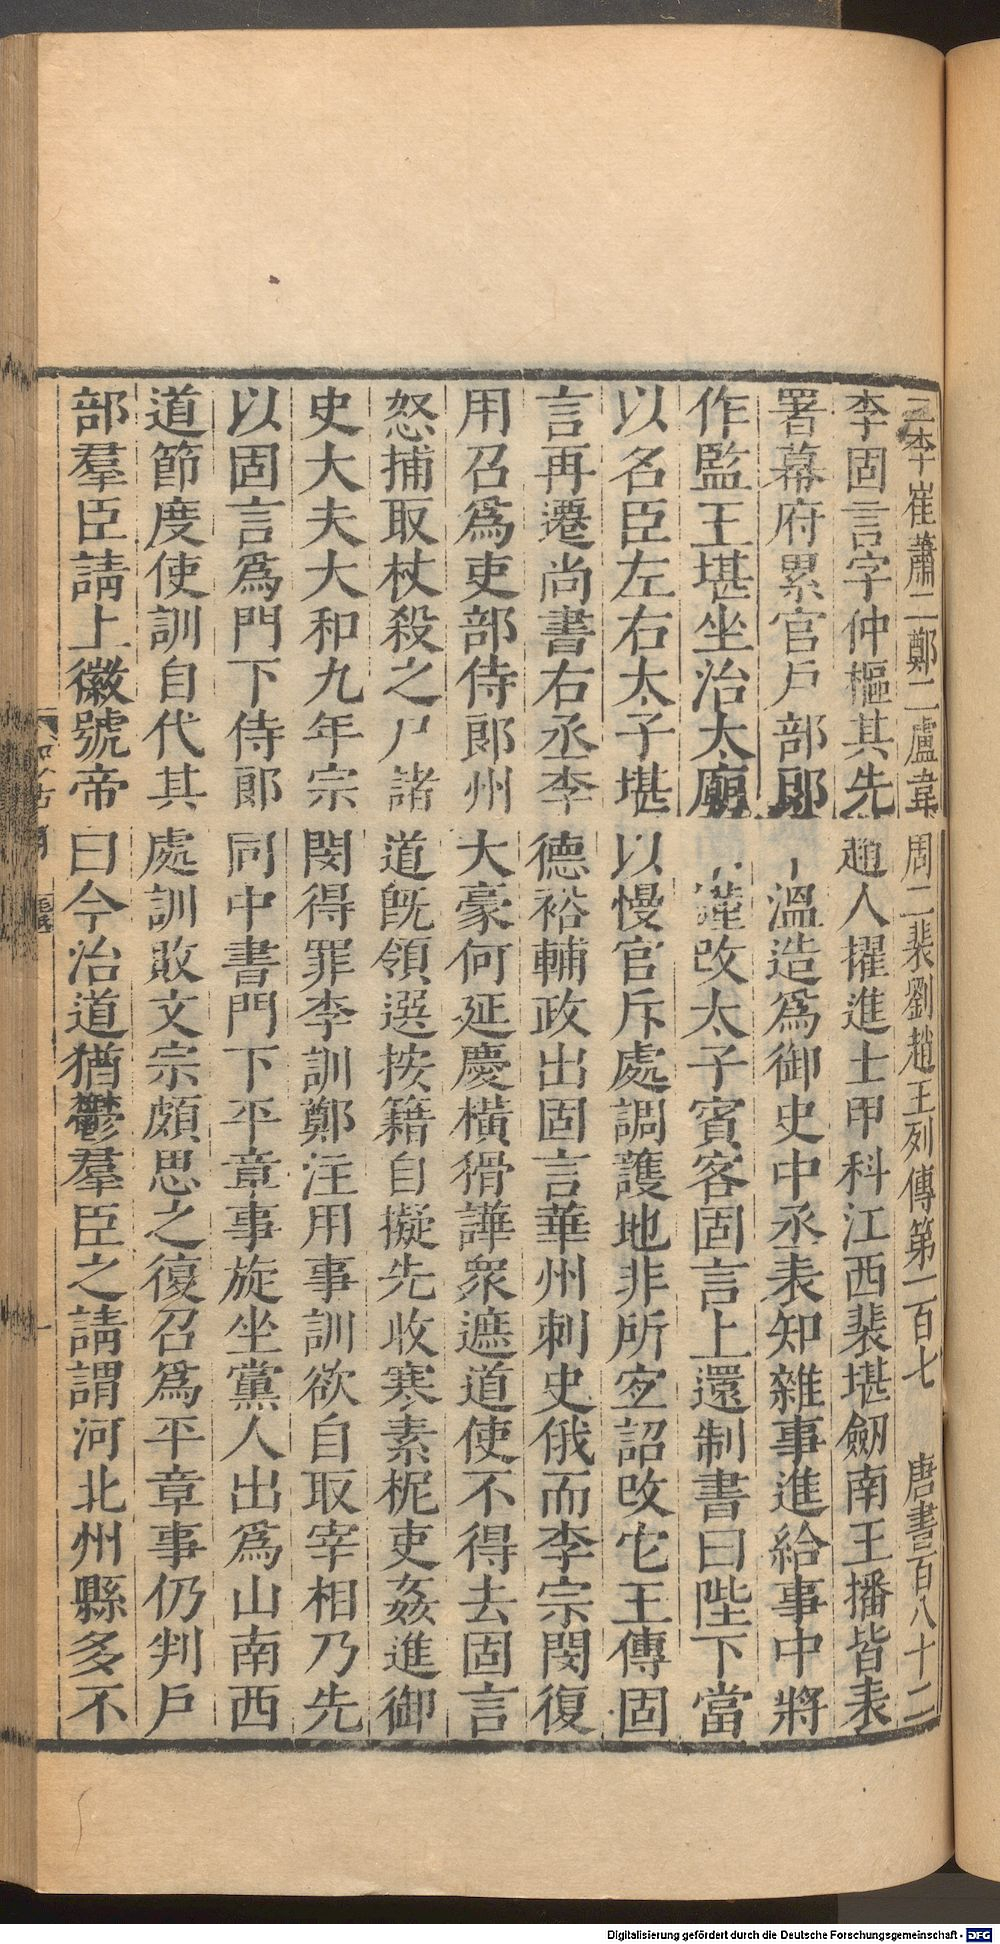 二李崔蕭二鄭二盧韋周二裴劉趙王列傳第一百七　唐書百八十二
李固言字仲樞其先趙人擢進士甲科江西裴堪劒南王播皆表
署幕府累官戶部郎溫造爲御史中丞表知雜事進給事中將
作監王堪坐治太廟改太子賓客固言上還制書曰陛下當
以名臣左右太子堪以慢官斥處調護地非所宜詔改它王傳固
言再遷尚書右丞李德裕輔政出固言華州刺史俄而李宗閔復
用召爲吏部侍郎州大豪何延慶橫猾譁衆遮道使不得去固言
怒捕取杖殺之尸諸道旣領選按籍自擬先收寒素柅吏姦進御
史大夫大和九年宗閔得罪李訓鄭注用事訓欲自取宰相乃先
以固言爲門下侍郎同中書門下平章事旋坐黨人出爲山南西
道節度使訓自代其處訓敗文宗頗思之復召爲平章事仍判戶
部羣臣請上徽號帝曰今治道猶鬱羣臣之請謂河北州縣多不
一
Digitalisierung gefördert durch die Deutsche Forschungsgemeinschaft - DFG